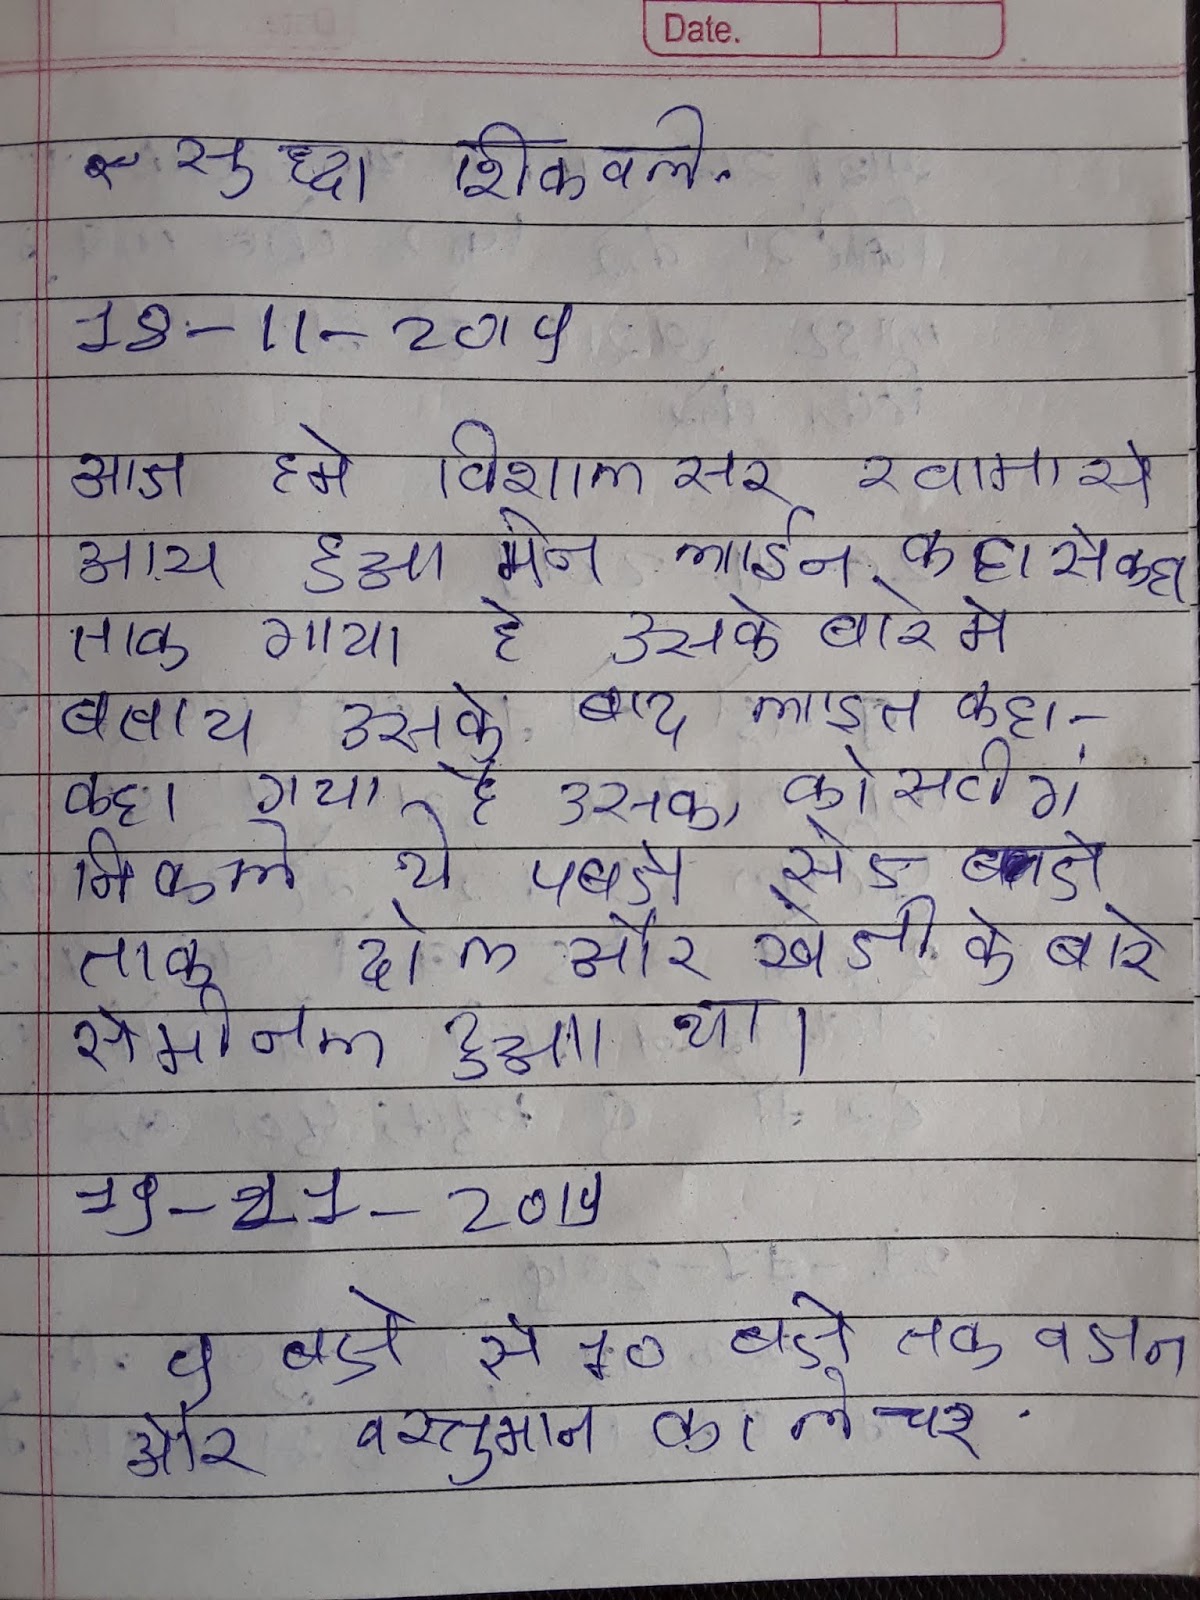 Date.
सुध्दा शिकवले.
18-11-2019
आज हमे विशाल सर खामासे
आय हुआ मेन लाईन कहा से कहा
ताक गाया हे उसके बारे मे
बबाय उसके बाद लाइत कहा-
कहा गया हे उसका कोसटीगं
निकले थे बजे
ताक दोल और खेजी के बारे
सेमीनल हुआ था।
19-11-2019
9 बजे से 10 बजे तक वजन
और वस्तुमान का लेचर.